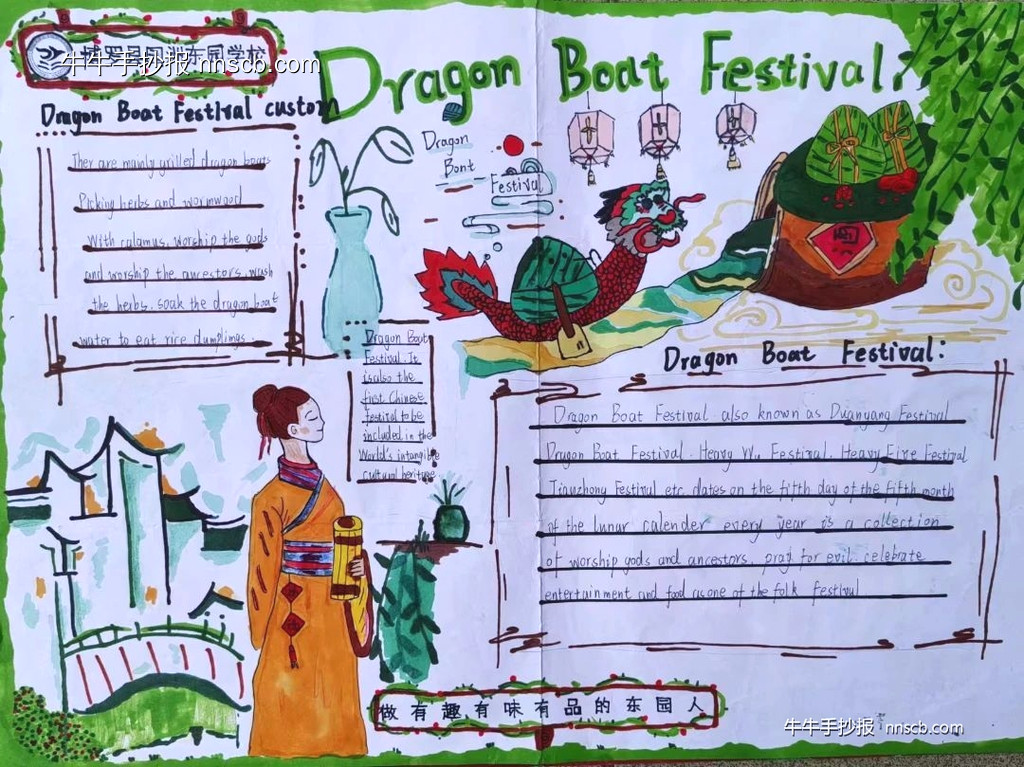 牛牛手抄报 nnscb.com
东园学校
Dragon Boat Festival
Dragon Boat Festival custom
They are mainly grilled dragon boats
Picking herbs and wormwood
With calamus, worship the gods
and worship the ancestors, wash
the herbs, soak the dragon boat
water to eat rice dumplings.
Dragon
Boat
Festival
Dragon Boat
Festival. It
is also the
first Chinese
festival to be
included in the
World's intangible
cultural heritage
Dragon Boat Festival:
Dragon Boat Festival also known as Duanyang Festival
Dragon Boat Festival. Heavy Wu Festival. Heavy Fire Festival
Tianzhong Festival etc. dates on the fifth day of the fifth month
of the lunar calender every year is a collection
of worship gods and ancestors, pray for evil. celebrate
entertainment and food as one of the folk festival
做有趣有味有品的东园人
牛牛手抄报 nnscb.com